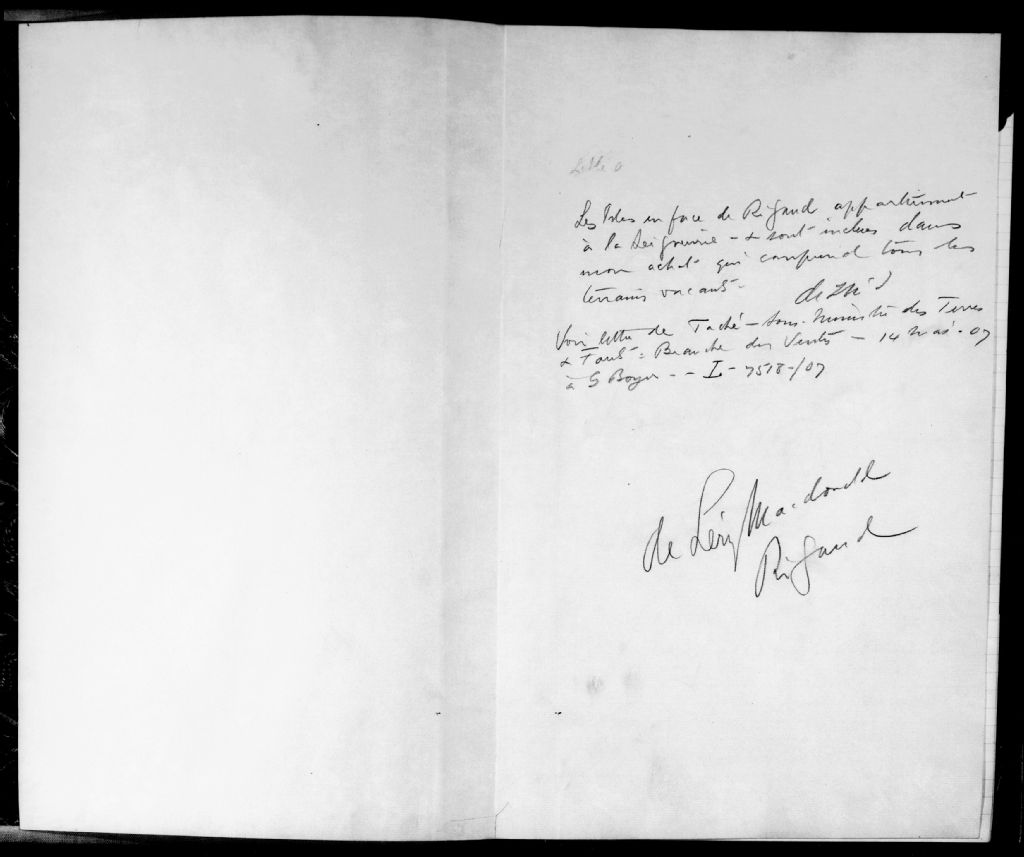 Les Isles en face de Rigaud appartiennent
à la Seigneurie - & sont inclues dans
mon achat qui comprend tous les
terrains vacants -
Voir lettre de Taché - Sous-Ministre des Terres
& Forêts - Branche des Ventes - 14 Mai - 07
à G Boyer - - I - 7518-/07
de Léry Macdonald
Rigaud